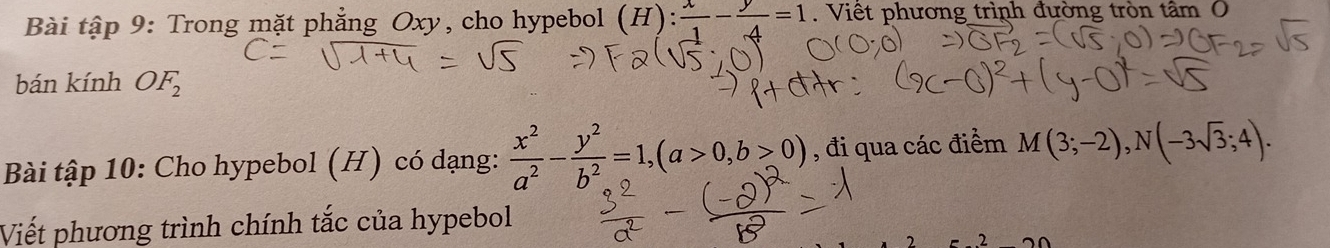 Bài tập 9: Trong mặt phẳng Oxy, cho hypebol (H): x/1 - y/4 = 1. Viết phương trình đường tròn tâm O
C = √1+4 = √5 ⇒ F2(√5; 0) O(0;0) ⇒ OF2 = (√5; 0) ⇒ OF2 = √5
bán kính OF₂
⇒ ptđtr: (x-0)²+(y-0)² = √5
Bài tập 10: Cho hypebol (H) có dạng: x²/a² - y²/b² = 1, (a > 0, b > 0), đi qua các điểm M(3;-2), N(-3√3;4).
3²/a² - (-2)²/b² = 1
Viết phương trình chính tắc của hypebol